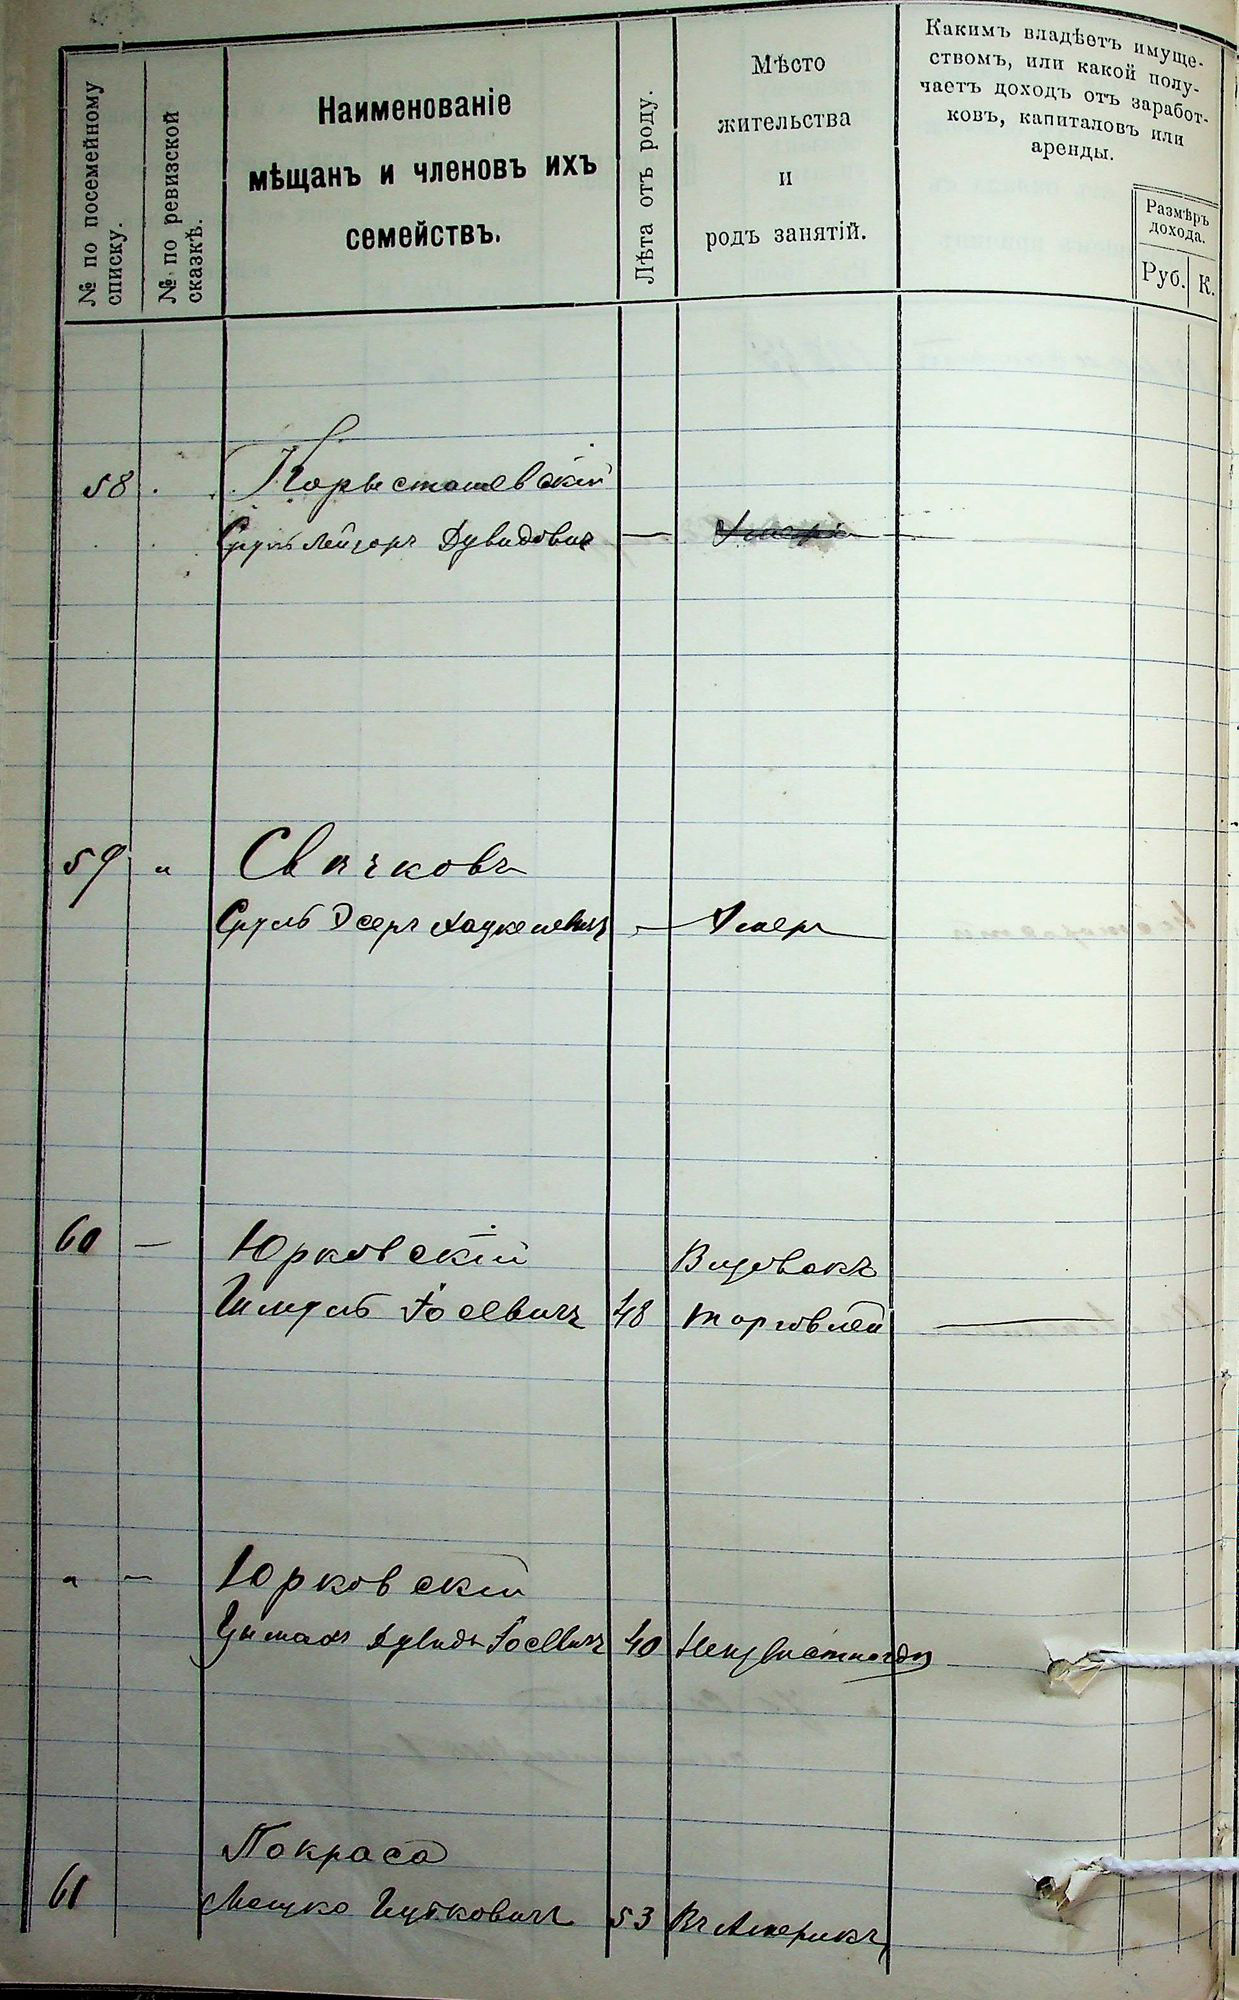 № по посемейному
списку.
№ по ревизской
сказкѣ.
Наименованіе
мѣщанъ и членовъ ихъ
семействъ.
Лѣта отъ роду.
Мѣсто
жительства
и
родъ занятій.
Какимъ владѣетъ имуще-
ствомъ, или какой полу-
чаетъ доходъ отъ заработ-
ковъ, капиталовъ или
аренды.
Размѣръ
дохода.
Руб. К.
58
Корысташевскій
Сруль Лейзоръ Дувидовичъ —
59 "
Свѣчковъ
Сруль — Умеръ
60 — Юрковскій
Шмуль Іосевичъ 48 торговлей —
" — Юрковскій
Дувидъ Іосевичъ 40 Неизвѣстно гдѣ
Покраса
61 Мошко Ицковичъ 53 Въ Америкѣ